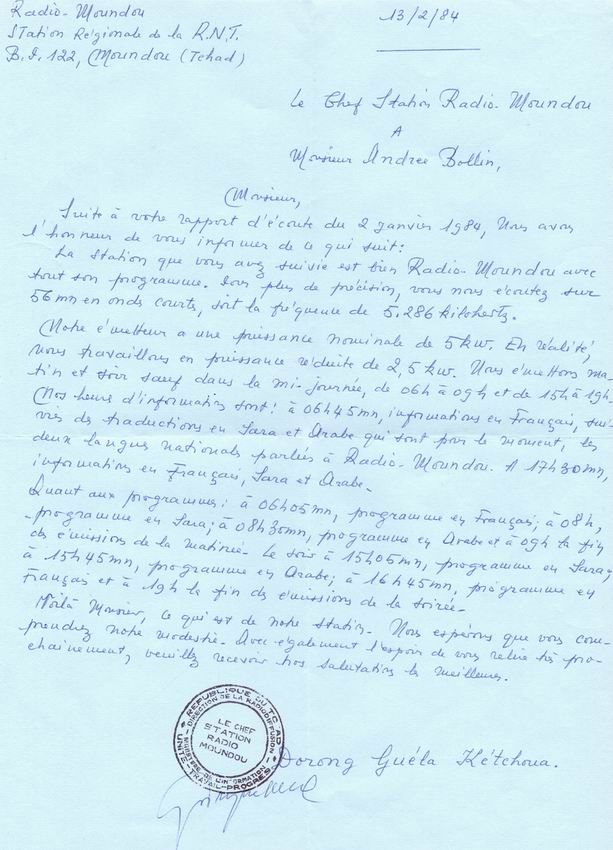 Radio-Moundou
Station Régionale de la R.N.T.
B.P. 122, Moundou (Tchad)
13/2/84
Le Chef Station Radio-Moundou
A
Monsieur Andree Bollin,
Monsieur,
Suite à votre rapport d'écoute du 2 janvier 1984, Nous avons
l'honneur de vous informer de ce qui suit:
La station que vous avez suivie est bien Radio-Moundou avec
tout son programme. Pour plus de précision, vous nous écoutez sur
56 mn en onds courts, soit la fréquence de 5.286 kilohertz.
Notre émetteur a une puissance nominale de 5 kw. En réalité,
nous travaillons en puissance réduite de 2,5 kw. Nous émettons ma-
tin et soir sauf dans la mi-journée, de 06h à 09h et de 15h à 19h.
Nos heures d'information sont: à 06h45mn, informations en Français, sui-
vies des traductions en Sara et Arabe qui sont pour le moment, les
deux langues nationales parlées à Radio-Moundou. A 17h30mn,
informations en Français, Sara et Arabe.
Quant aux programmes: à 06h05mn, programme en Français; à 08h,
programme en Sara; à 08h30mn, programme en Arabe et à 09h la fin
des émissions de la matinée. Le soir à 15h05mn, programme en Sara;
à 15h45mn, programme en Arabe; à 16h45mn, programme en
Français et à 19h la fin des émissions de la soirée.
Voilà Monsieur, ce qui est de notre station. Nous espérons que vous com-
prendrez notre modestie. Avec également l'espoir de vous relire très pro-
chainement, veuillez recevoir nos salutations les meilleures.
REPUBLIQUE DU TCHAD
DIRECTION DE LA RADIODIFFUSION
LE CHEF
STATION
RADIO
MOUNDOU
MINISTERE DE L'INFORMATION
UNITE-TRAVAIL-PROGRES
Dorong Guéla Kétchoua.